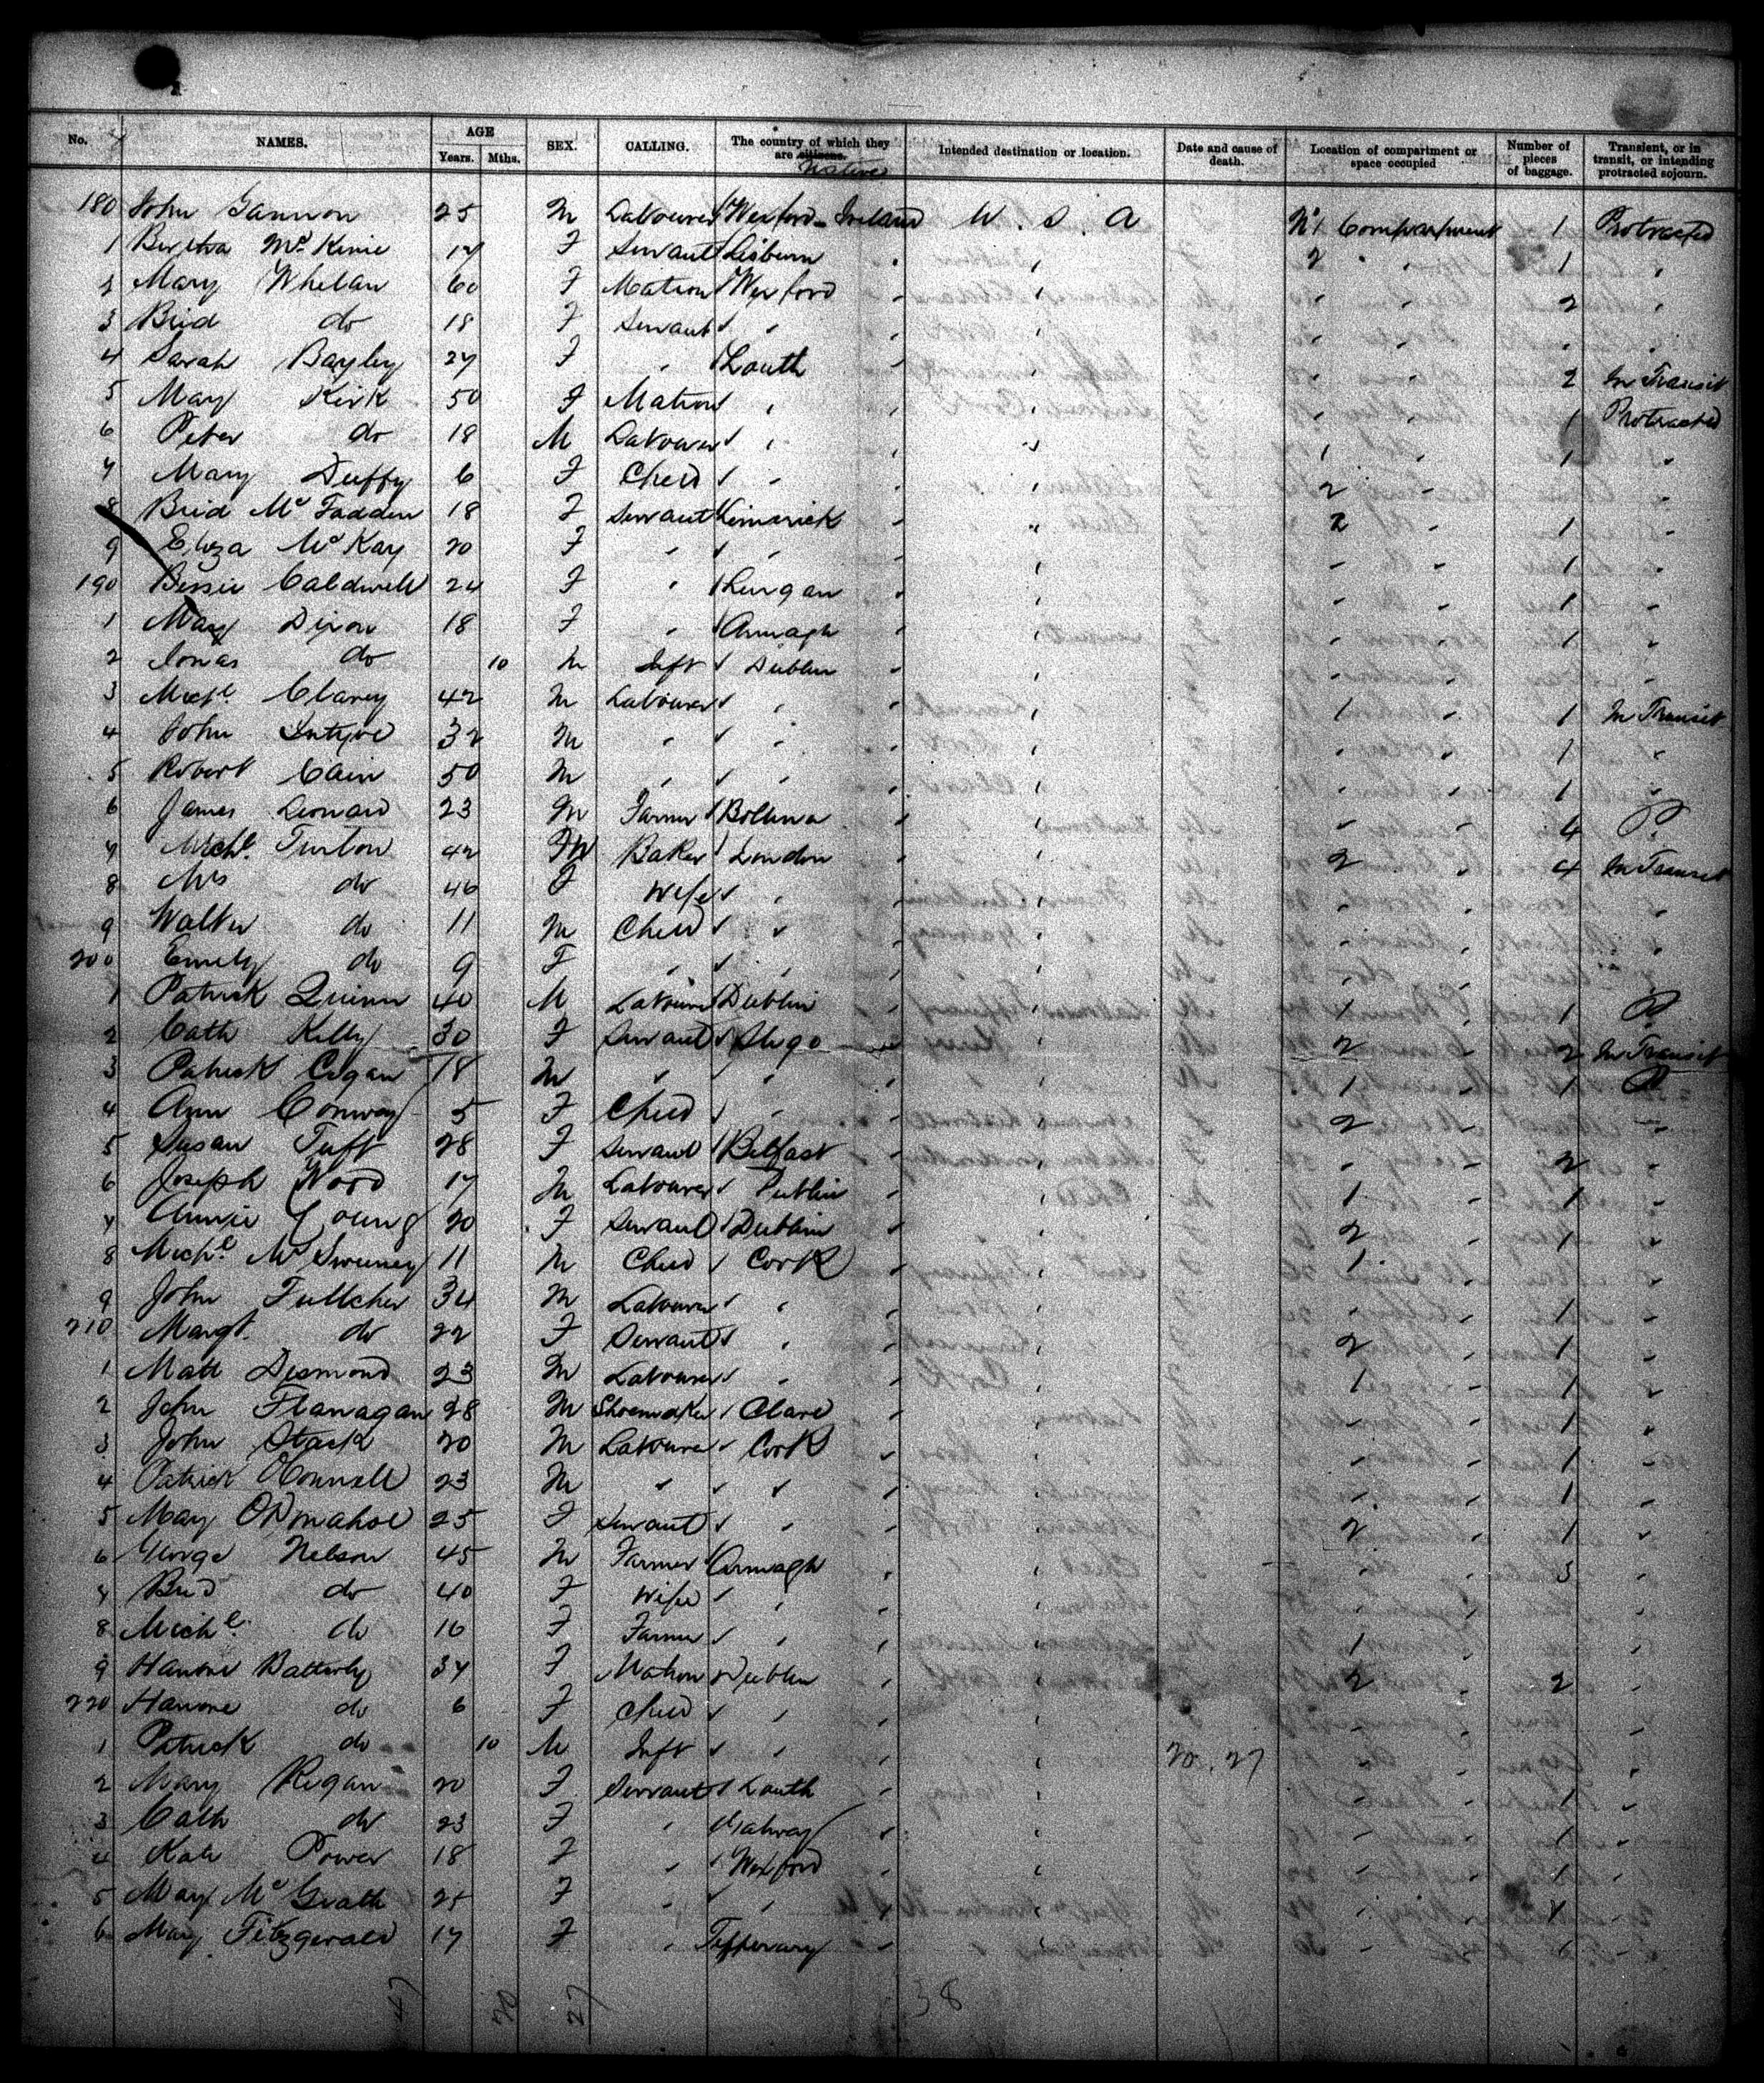 No. NAMES. AGE Years. Mths. SEX. CALLING. The country of which they are citizens. Native Intended destination or location. Date and cause of death. Location of compartment or space occupied Number of pieces of baggage. Transient, or in transit, or intending protracted sojourn.
180 John Gannon 25 M Labourer Wexford - Ireland U. S. A No 1 Compartment 1 Protracted
1 Bertha McKinie 17 F Servant Lisburn " 2 " 1 "
2 Mary Whelan 60 F Matron Wexford " " " 2 "
3 Brid do 18 F Servant " " " " "
4 Sarah Bayley 27 F " Louth " " " 2 In Transit
5 Mary Kirk 50 F Matron " " " " 1 Protracted
6 Peter do 18 M Labourer " " 1 " 1 "
7 Mary Duffy 6 F Child " " 2 " "
8 Brid McFadden 18 F Servant Limerick " 2 " 1 "
9 Eliza McKay 20 F " " " " " 1 "
190 Bessie Caldwell 24 F " Lurgan " " " 1 "
1 Mary Dixon 18 F " Armagh " " " 1 "
2 Jonas do 10 M Inft Dublin " " " "
3 Michl Clarey 42 M Labourer " " 1 " 1 In Transit
4 John Intyre 32 M " " " " " 1 "
5 Robert Cain 50 M " " " " " 1 "
6 James Leonard 23 M Farmer " " " 4 P
7 Michl. Turton 42 M Baker London " 2 " 4 In Transit
8 Mrs do 46 F Wife " " " " "
9 Walter do 11 M Child " " " " "
200 Emily do 9 F " " " " " "
1 Patrick Quinn 40 M Labourer Dublin " 1 " 1 P
2 Cath Kelly 30 F Servant Sligo " 2 " 2 In Transit
3 Patrick Cogan 18 M " " " 1 " 1 P
4 Ann Conway 5 F Child " " 2 " "
5 Susan Tuft 28 F Servant Belfast " " " 2 "
6 Joseph Wood 17 M Labourer Dublin " 1 " 1 "
7 Annie Young 20 F Servant Dublin " 2 " 1 "
8 Michl McSweeney 11 M Child Cork " 1 " "
9 John Fullcher 34 M Labourer " " " " 1 "
210 Margt. do 22 F Servant " " 2 " 1 "
1 Matt Desmond 23 M Labourer " " 1 " 1 "
2 John Flanagan 28 M Shoemaker Clare " " " 1 "
3 John Stack 20 M Labourer Cork " " " 1 "
4 Patrick OConnell 23 M " " " " " 1 "
5 Mary ODonahoe 25 F Servant " " 2 " 1 "
6 George Nelson 45 M Farmer Armagh " " " 3 "
7 Brid do 40 F Wife " " " " "
8 Michl do 16 F Farmer " " 1 " "
9 Hanore Batterly 34 F Matron Dublin " 2 " 2 "
220 Hanore do 6 F Child " " " " "
1 Patrick do 10 M Inft " " 20. 27 " " "
2 Mary Regan 20 F Servant Louth " " " 1 "
3 Cath do 23 F " Galway " " " 1 "
4 Kate Power 18 F " Wexford " " " 1 "
5 Mary McGrath 25 F " " " " " 1 "
6 Mary Fitzgerald 17 F " Tipperary " " " "
47 20 27 38